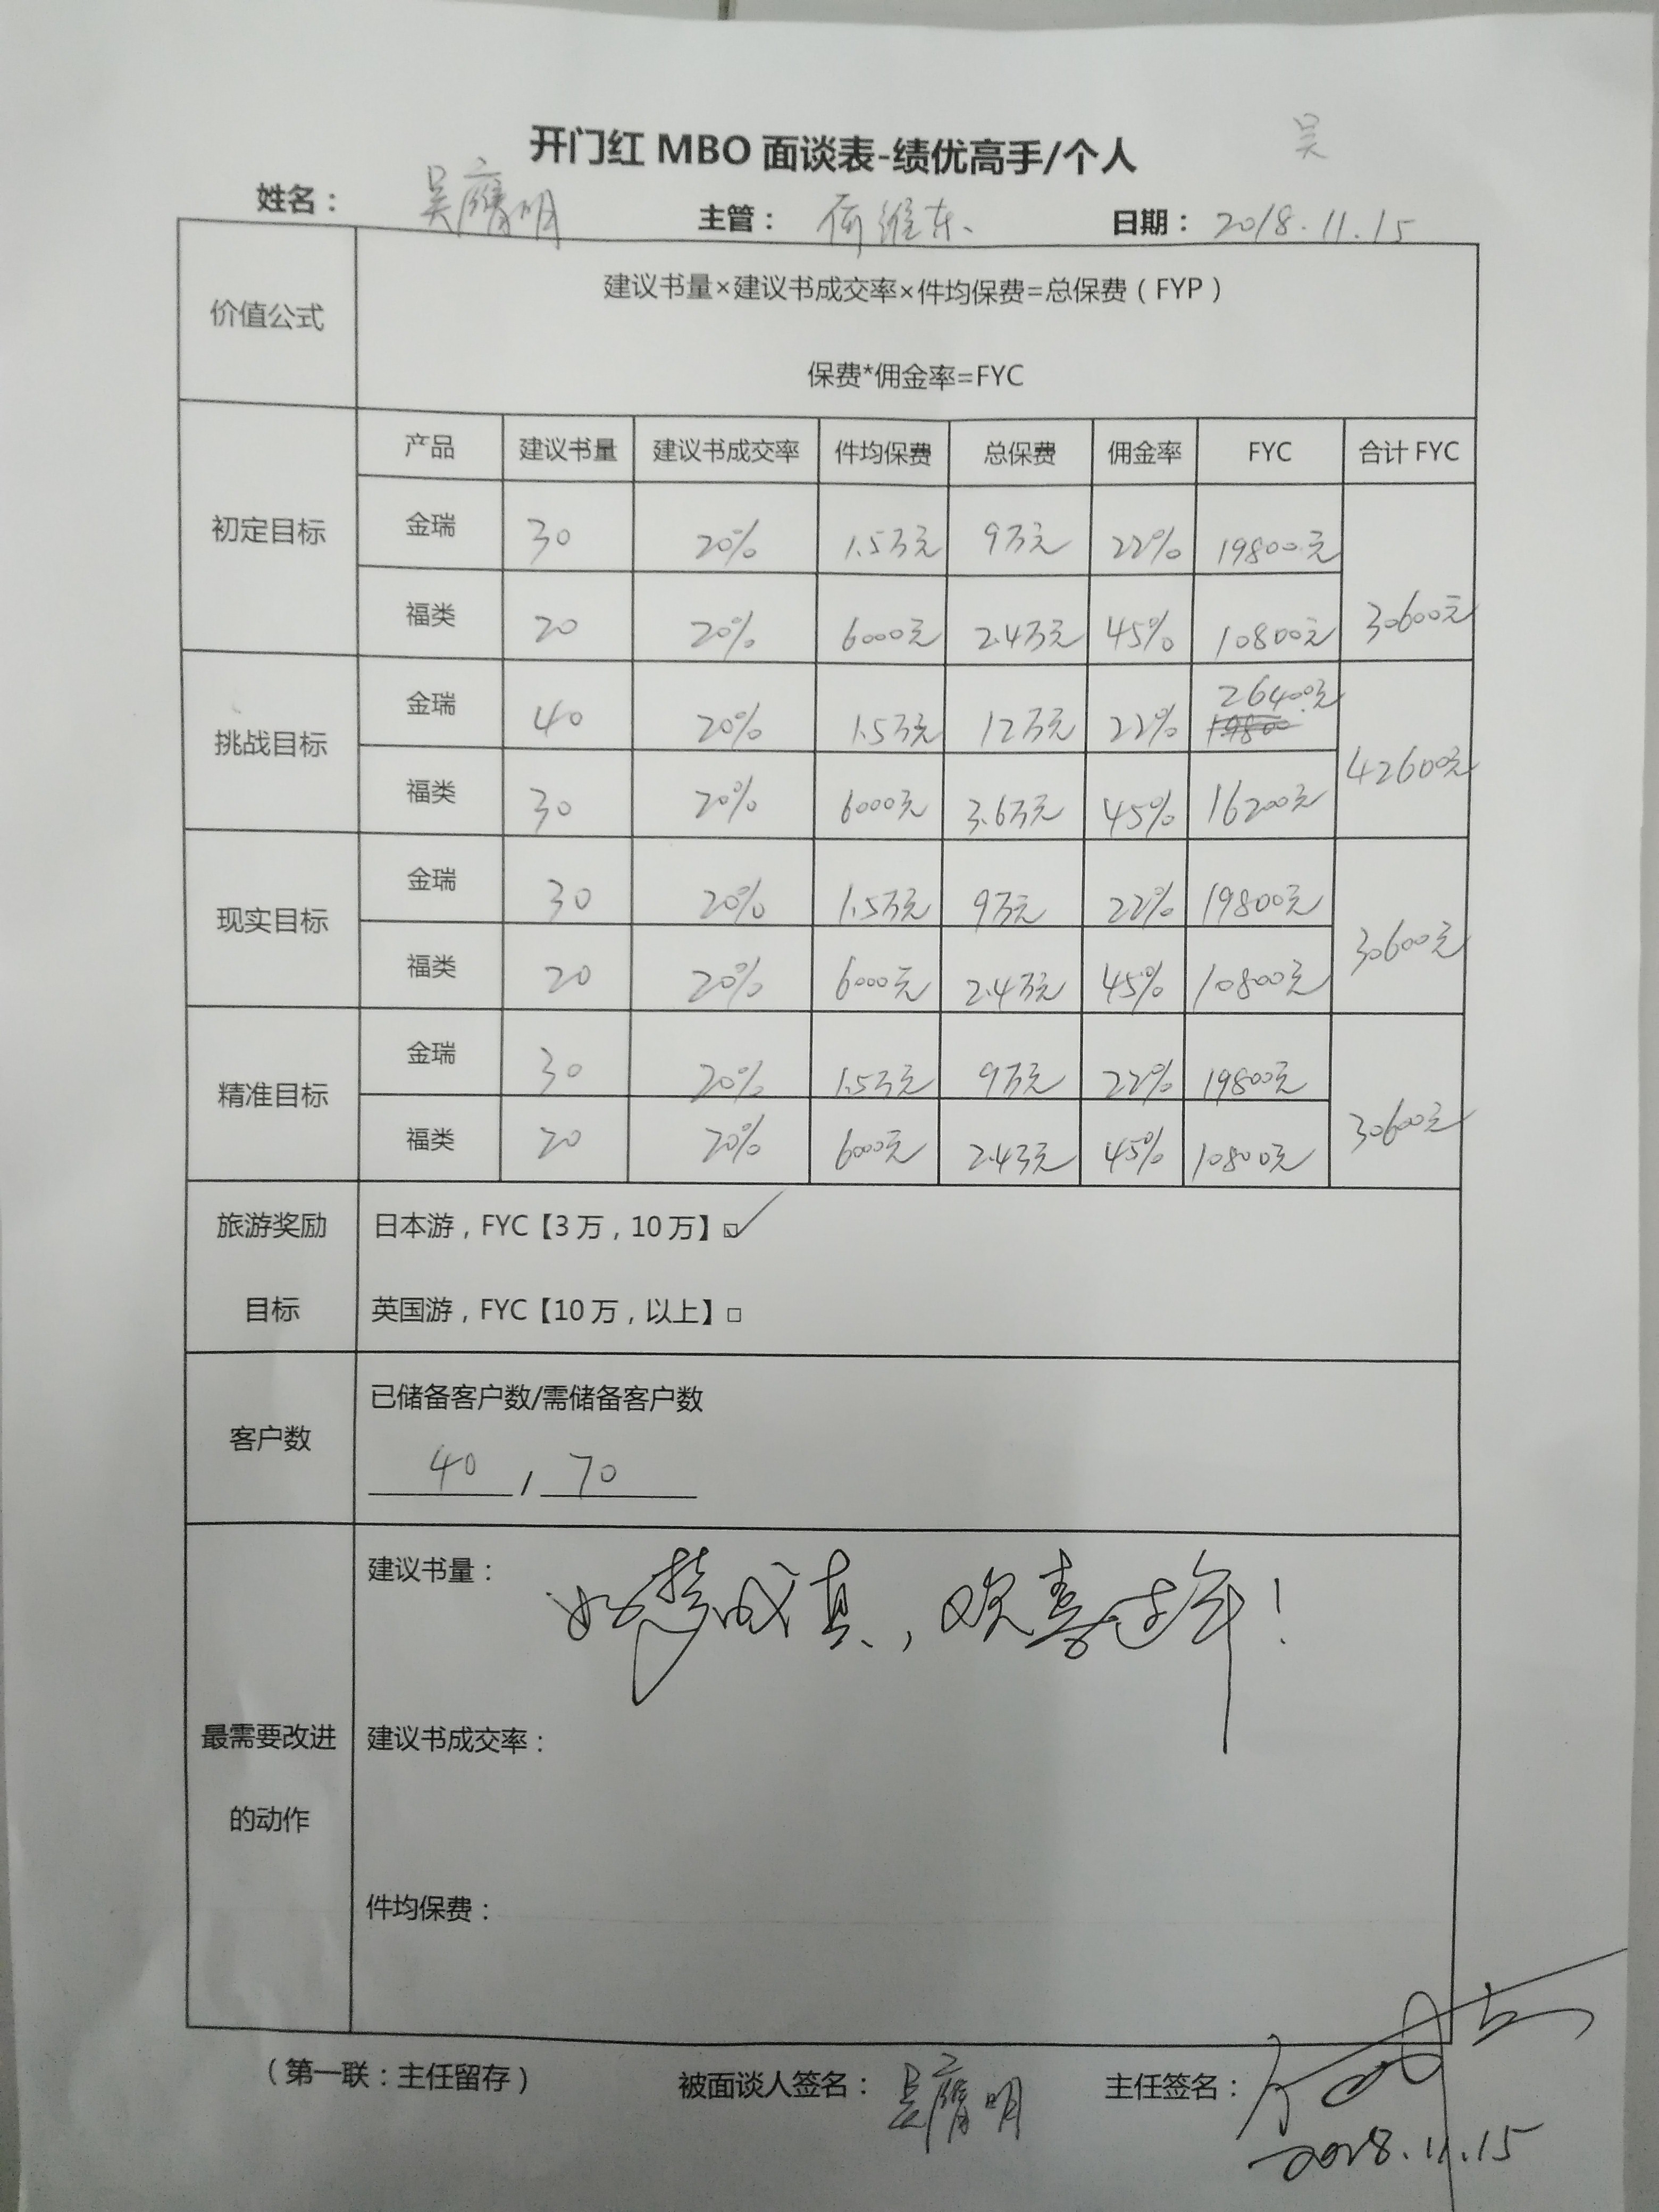 开门红 MBO 面谈表-绩优高手/个人
吴
姓名： 吴膺明 主管： 何维东 日期： 2018.11.15
价值公式
建议书量×建议书成交率×件均保费=总保费（FYP）
保费*佣金率=FYC
产品 建议书量 建议书成交率 件均保费 总保费 佣金率 FYC 合计 FYC
初定目标
金瑞 30 20% 1.5万元 9万元 22% 19800元
福类 20 20% 6000元 2.4万元 45% 10800元 30600元
挑战目标
金瑞 40 20% 1.5万元 12万元 22% 26400元
19800
福类 30 20% 6000元 3.6万元 45% 16200元 42600元
现实目标
金瑞 30 20% 1.5万元 9万元 22% 19800元
福类 20 20% 6000元 2.4万元 45% 10800元 30600元
精准目标
金瑞 30 20% 1.5万元 9万元 22% 19800元
福类 20 20% 6000元 2.4万元 45% 10800元 30600元
旅游奖励
目标
日本游，FYC【3 万，10 万】☑
英国游，FYC【10 万，以上】□
客户数
已储备客户数/需储备客户数
40 / 70
最需要改进
的动作
建议书量： 好梦成真，欢喜过年！
建议书成交率：
件均保费：
（第一联：主任留存） 被面谈人签名： 吴膺明 主任签名：
2018.11.15